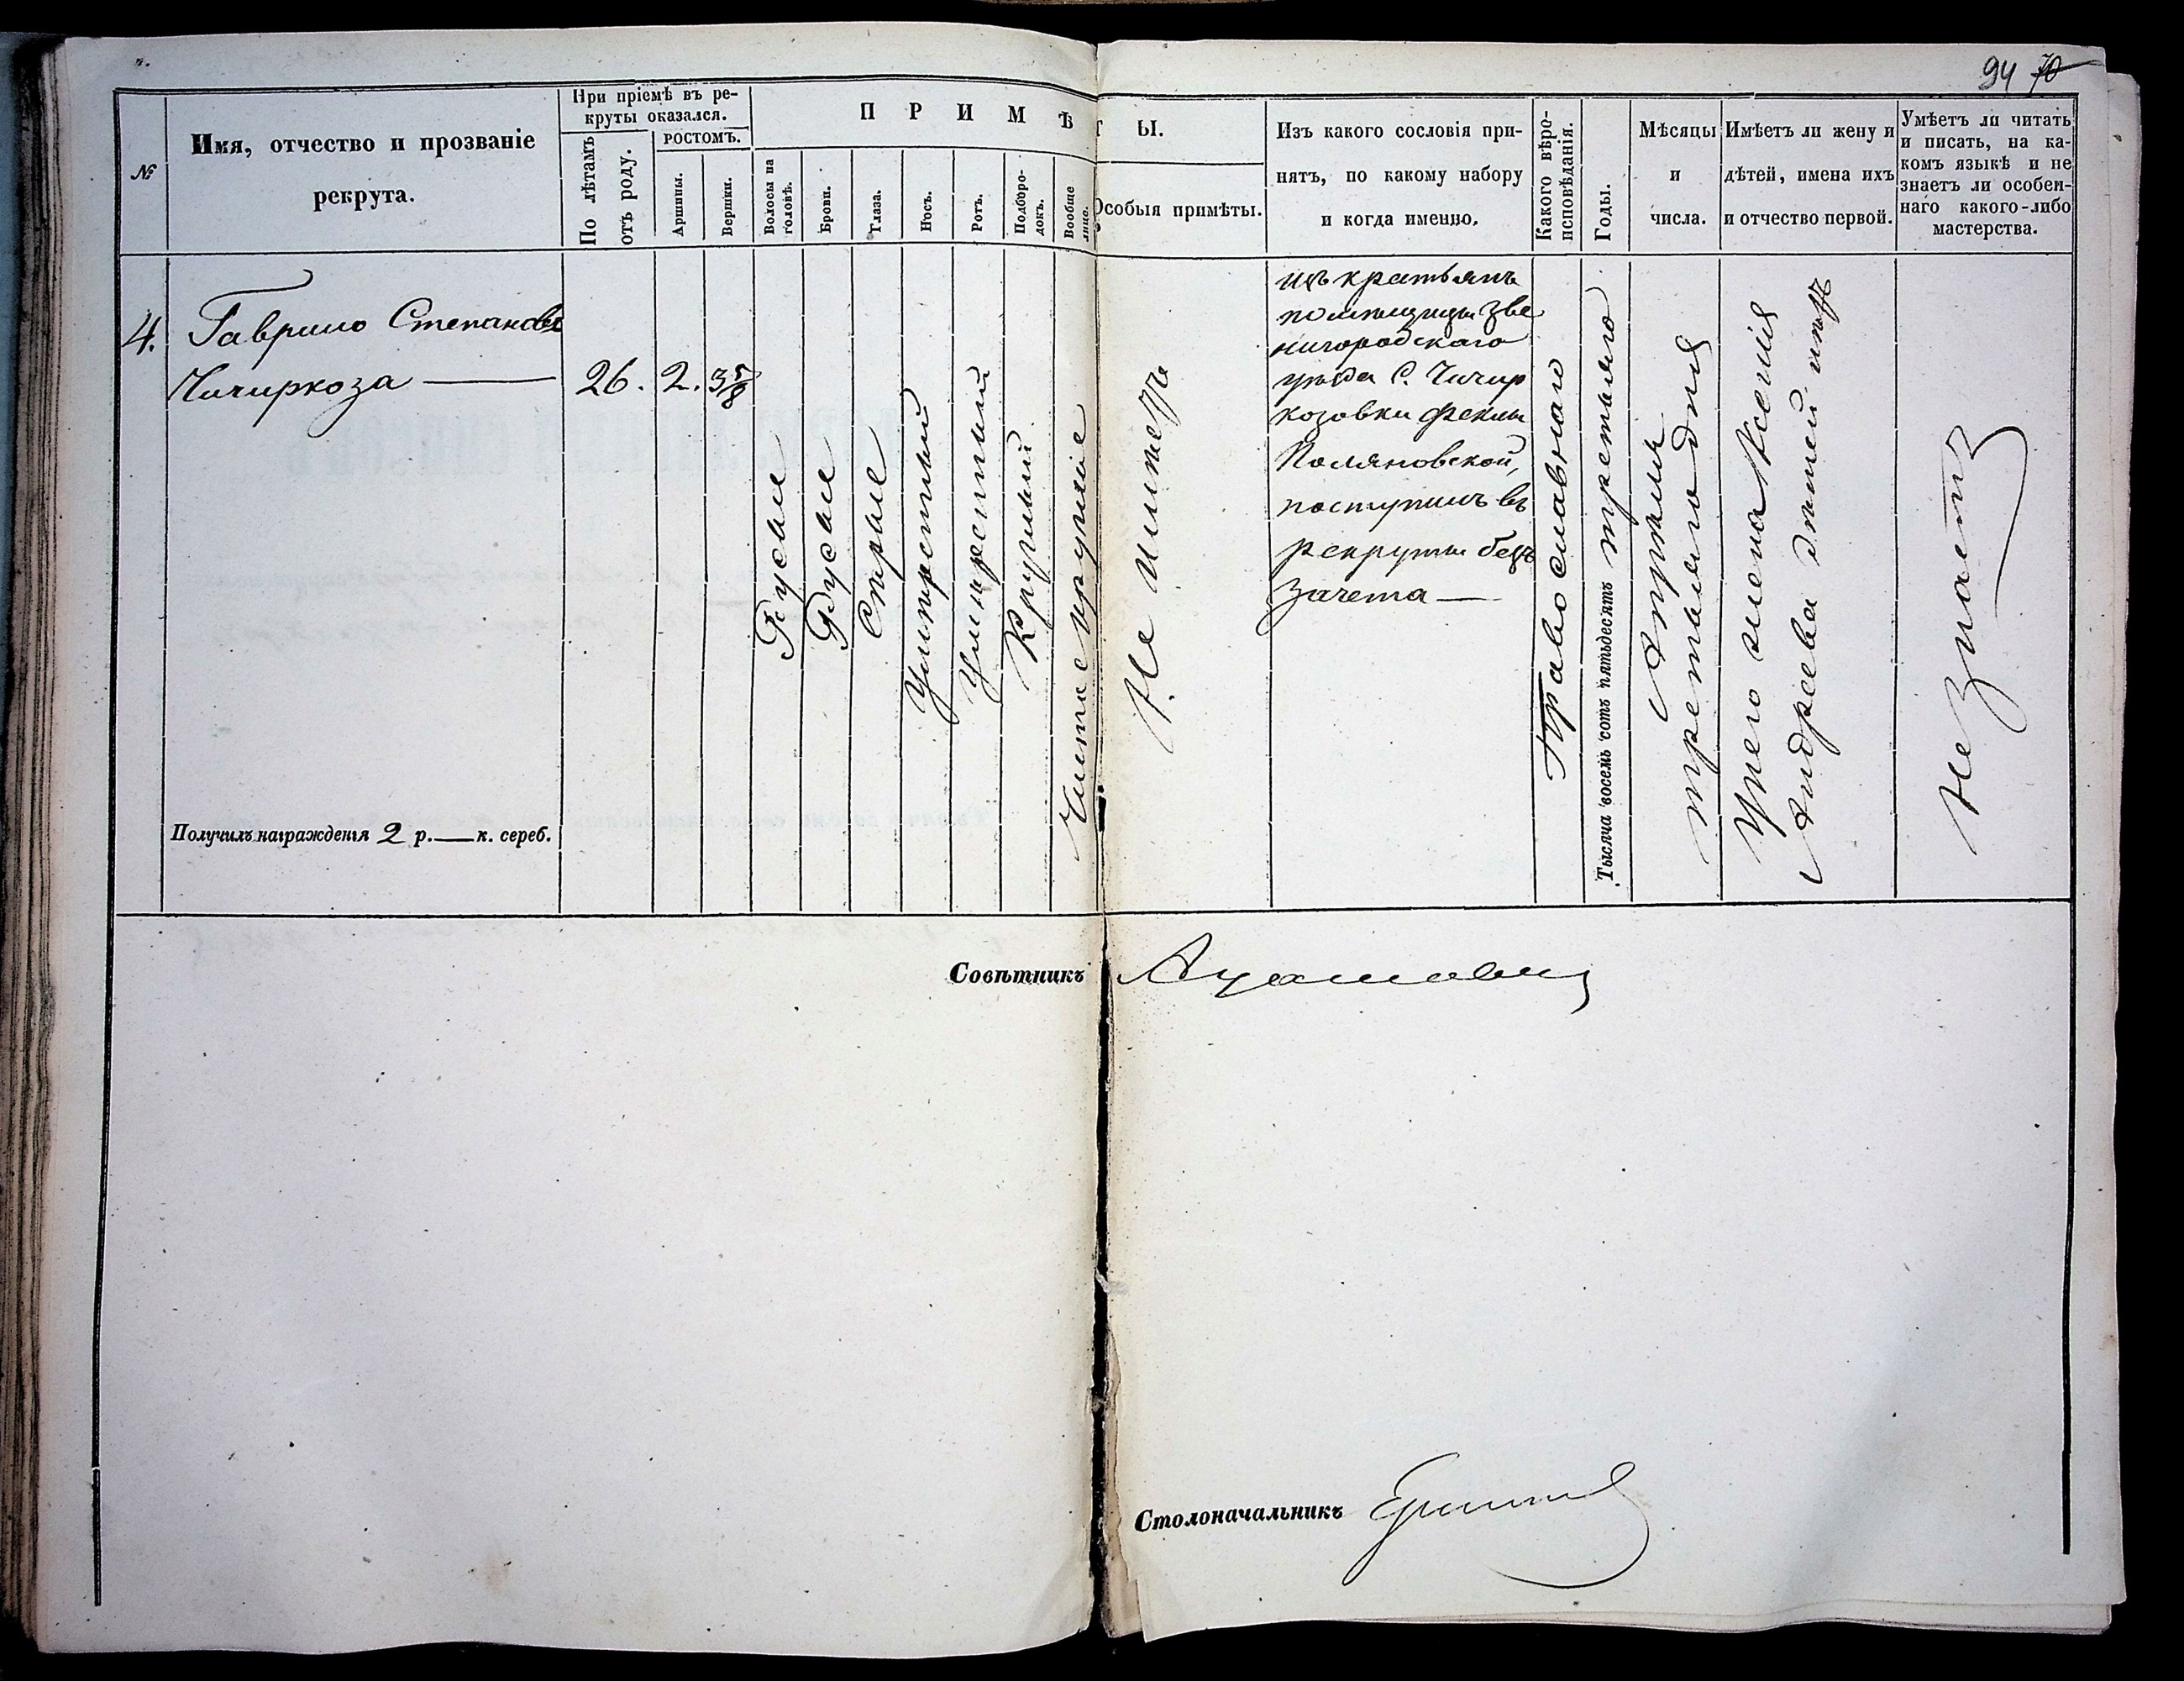 94 70
№
Имя, отчество и прозваніе
рекрута.
При пріемѣ въ ре-
круты оказался.
По лѣтамъ
отъ роду.
ростомъ.
Аршины.
Вершки.
ПРИМѢТЫ.
Волосы на
головѣ.
Брови.
Глаза.
Носъ.
Ротъ.
Подборо-
докъ.
Вообще
лице.
Особыя примѣты.
Изъ какого сословія при-
нятъ, по какому набору
и когда именно.
Какого вѣро-
исповѣданія.
Годы.
Мѣсяцы
и
числа.
Имѣетъ ли жену и
дѣтей, имена ихъ
и отчество первой.
Умѣетъ ли читать
и писать, на ка-
комъ языкѣ и не
знаетъ ли особен-
наго какого-либо
мастерства.
4.
Гаврило Степановъ
Чичиркоза —
26.
2.
3 5/8
Русые
Русые
Сѣрые
Умѣренный
Умѣренный
Круглый
Чистое круглое
Не имѣетъ
изъ крѣстьянъ
помѣщицы Зве
нигородскаго
уѣзда С. Чичир
козовки Феклы
Поляновской,
поступилъ въ
рекруты безъ
зачета —
Православнаго
Тысяча восемь сотъ пятьдесятъ третьяго
Апрѣля
третьяго дня
У него жена Ксенія
Андреева дѣтей нѣтъ
Не знаетъ
Получилъ награжденія 2 р. — к. сереб.
Совѣтникъ
Столоначальникъ